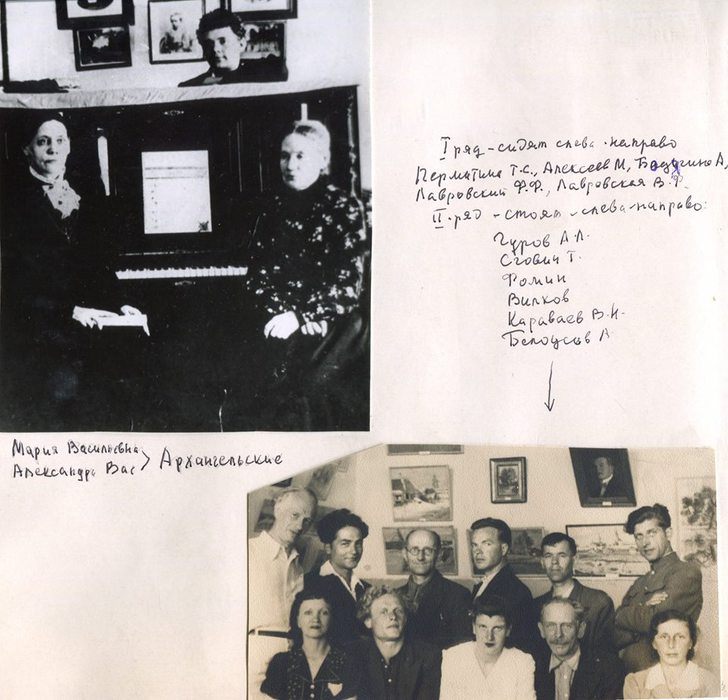 I ряд - сидят слева-направо
Перматина Т.С., Алексеев М, А,
Лавровский Ф.Ф., Лавровская В.Ф.
II ряд - стоят - слева-направо:
Гуров А.Л.
Сгович Т.
Фомин
Вилков
Караваев В.И.
Белоусов А.
Мария Васильевна
Александра Вас > Архангельские